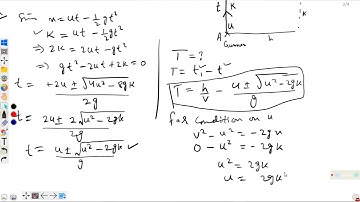 Sim x = ut - ½gt²
✓ K = ut - ½gt²
⇒ 2K = 2ut - gt²
⇒ gt² - 2ut + 2K = 0
t = +2u ± √4u² - 8gK / 2g
t = 2u ± 2√u² - 2gK / 2g
t = u ± √u² - 2gK / g ✓
t K
u
A
h
T = ?
T = t₁ - t
T = h/v - u ± √u² - 2gK / g
for condition on u
v² - u² = -2gx
0 - u² = -2gK
u² = 2gK
u = 2gK